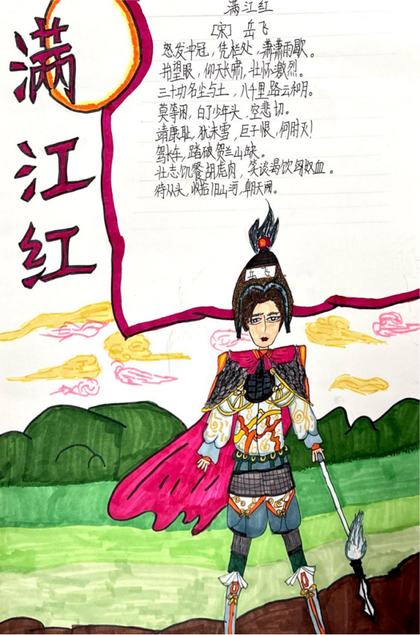 满江红
满江红
[宋] 岳飞
怒发中冠，凭栏处，潇潇雨歇。
抬望眼，仰天长啸，壮怀激烈。
三十功名尘与土，八千里路云和月。
莫等闲，白了少年头，空悲切。
靖康耻，犹未雪，臣子恨，何时灭！
驾长车，踏破贺兰山缺。
壮志饥餐胡虏肉，笑谈渴饮匈奴血。
待从头，收拾旧山河，朝天阙。
岳飞